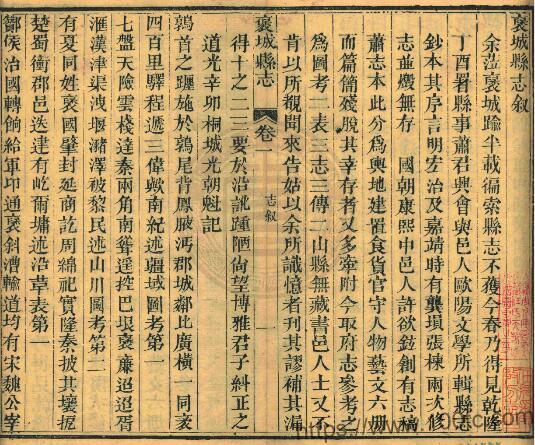 褒城縣志叙
余蒞褒城踰半載徧索縣志不獲今春乃得見乾隆
丁酉署縣事蕭君興會與邑人歐陽文學所輯縣志
鈔本其序言明宏治及嘉靖時有龔瑣張棟兩次修
志並燬無存 國朝康熙中邑人許欲鉉創有志稿
蕭志本此分為輿地建置食貨官守人物藝文六册
而篇簡殘脫其幸存者又多牽附今取府志參考之
爲圖考二表三志三傳二山縣無藏書邑人士又不
肯以所覩聞來告姑以余所識憶者刊其謬補其漏
得十之二三要於沿訛踵陋尚望博雅君子糾正之
道光辛卯桐城光朝魁記
褒城縣志 卷 志叙
鶉首之躔施於鶉尾背鳳厭沔郡城鄰比廣横一同袤
四百里驛程遞三偉歟南紀述疆域圖考第一
七盤天險雲棧達秦兩角南聳遥控巴垠褒廉迢迢胥
滙漢津渠洩堰瀦澤被黎民述山川圖考第二
有夏同姓褒國肇封延商訖周綿祀實隆秦披其壤扼
楚蜀衝郡邑迭建有屹爾墉述沿革表第一
酇侯治國轉餉給軍卭通褒斜漕輸道均有宋魏公宰